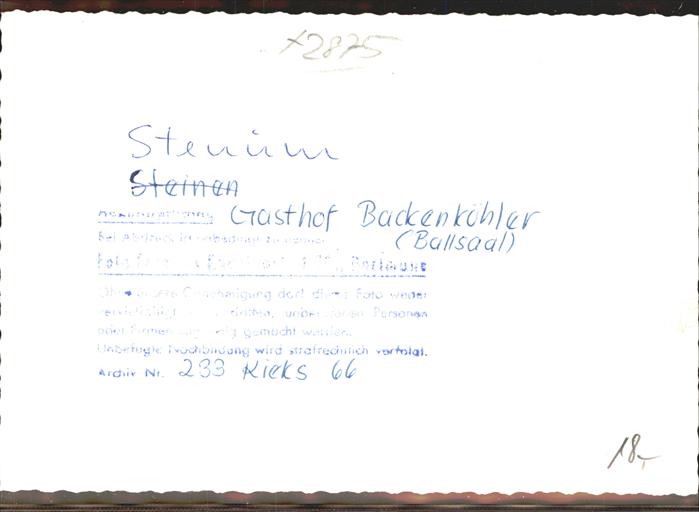 x2875
Stenum
Steinen
Gasthof Backenköhler
(Ballsaal)
Bei Abdruck ist unbedingt zu nennen
Foto
Ohne unsere Genehmigung darf dieses Foto weder
vervielfältigt unbefugten Personen
oder Firmen gemacht werden.
Unbefugte Nachbildung wird strafrechtlich verfolgt.
Archiv Nr. 233 Kieks 66
18,-